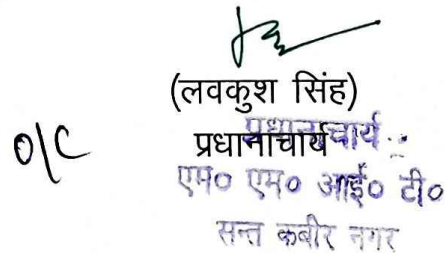 (लवकुश सिंह)
O/C प्रधानाचार्य
प्रधानाचार्य
एम० एम० आई० टी०
सन्त कबीर नगर